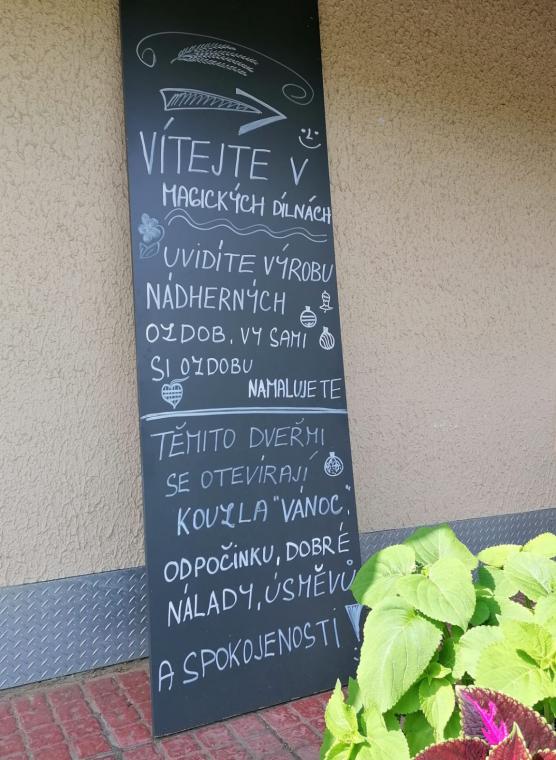 VÍTEJTE V
MAGICKÝCH DÍLNÁCH
UVIDÍTE VÝROBU
NÁDHERNÝCH
OZDOB. VY SAMI
SI OZDOBU
NAMALUJETE
TĚMITO DVEŘMI
SE OTEVÍRAJÍ
KOUZLA "VÁNOC",
ODPOČINKU, DOBRÉ
NÁLADY, ÚSMĚVŮ
A SPOKOJENOSTI